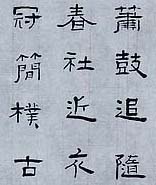 蕭鼓追隨
春社近衣
冠簡樸古